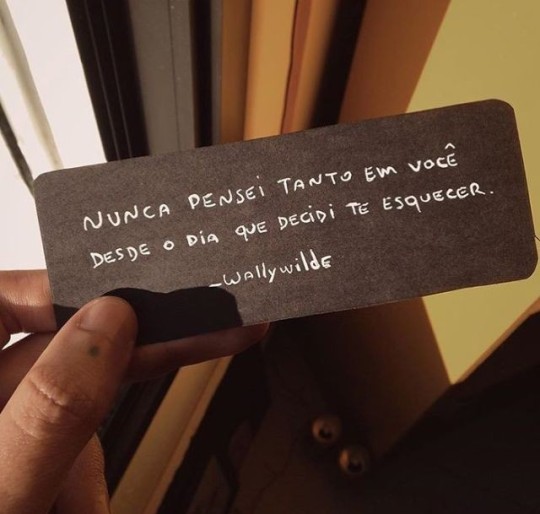 NUNCA PENSEI TANTO EM VOCÊ
DESDE O DIA QUE DECIDI TE ESQUECER.
_wallywilde